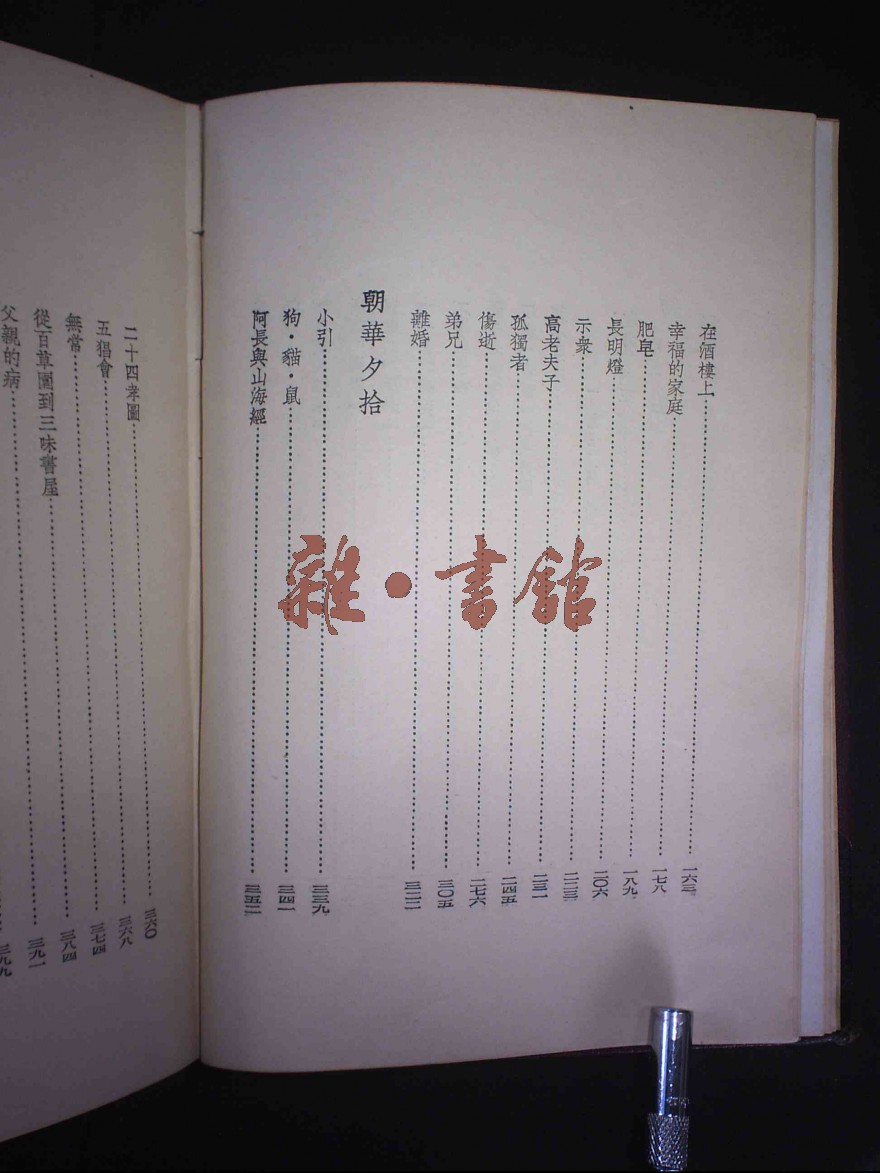 在酒樓上……一六三
幸福的家庭……一七八
肥皂……一八九
長明燈……二〇六
示衆……二二三
高老夫子……二三一
孤獨者……二四五
傷逝……二七六
弟兄……三〇五
離婚……三二二
朝華夕拾
小引……三三九
狗·貓·鼠……三四一
阿長與山海經……三五二
二十四孝圖……三六〇
五猖會……三六八
無常……三七四
從百草園到三味書屋……三八四
父親的病……三九一
三九九
雜·書館